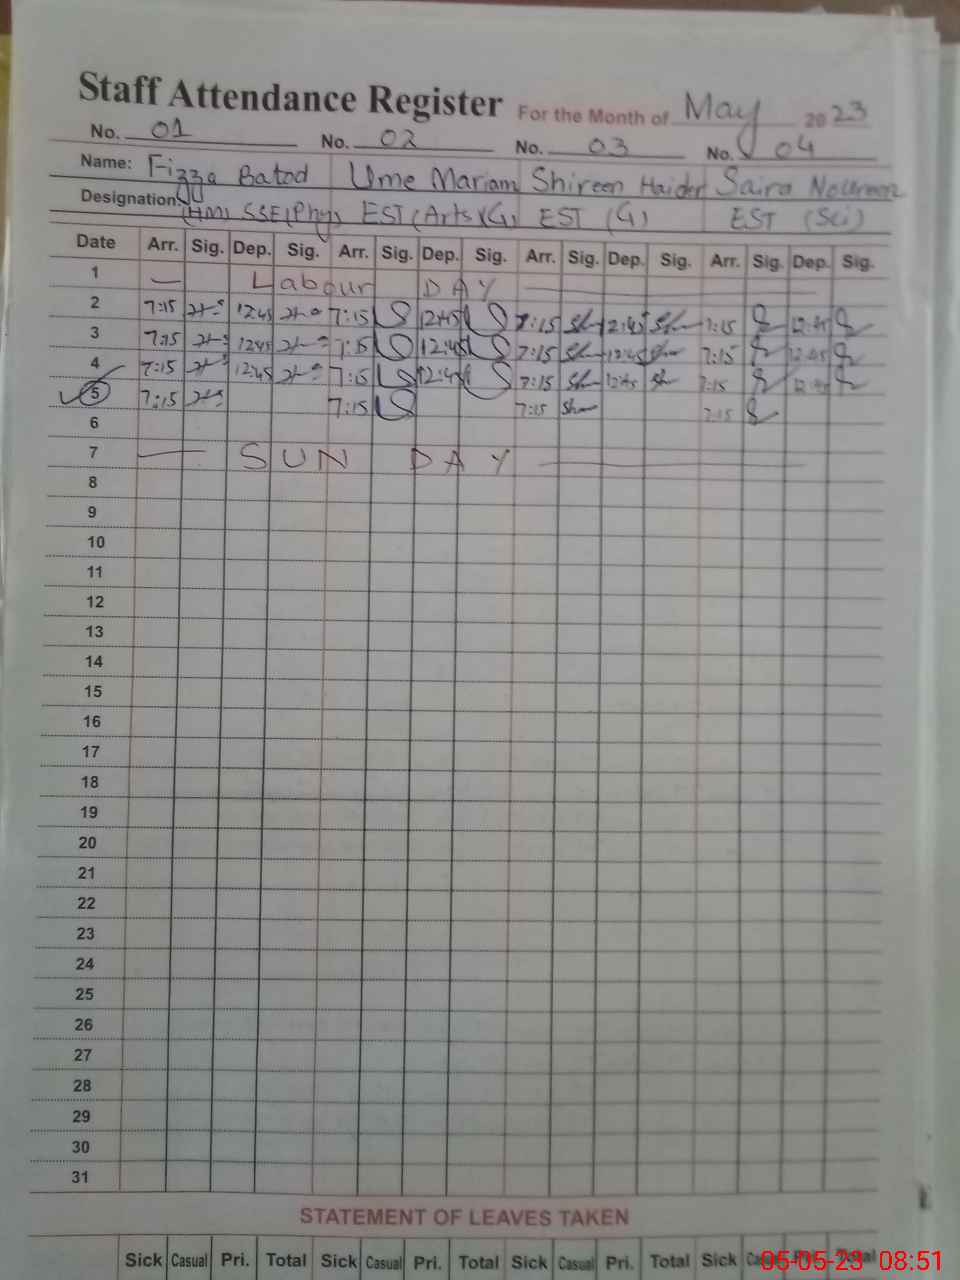 Staff Attendance Register For the Month of May 2023
No. 01 No. 02 No. 03 No. 04
Name: Fizza Batool Ume Mariam Shireen Haider Saira Noureen
Designation: (HM) SSE(Phy) EST (Arts)(G) EST (G) EST (Sci)
Date Arr. Sig. Dep. Sig. Arr. Sig. Dep. Sig. Arr. Sig. Dep. Sig. Arr. Sig. Dep. Sig.
1 Labour DAY
2 7:15 12:45 7:15 12:45 7:15 12:45 7:15 12:45
3 7:15 12:45 7:15 12:45 7:15 12:45 7:15 12:45
4 7:15 12:45 7:15 12:45 7:15 12:45 7:15 12:45
5 7:15 7:15 7:15 7:15
6
7 SUN DAY
8
9
10
11
12
13
14
15
16
17
18
19
20
21
22
23
24
25
26
27
28
29
30
31
STATEMENT OF LEAVES TAKEN
Sick Casual Pri. Total Sick Casual Pri. Total Sick Casual Pri. Total Sick Total
05-05-23 08:51